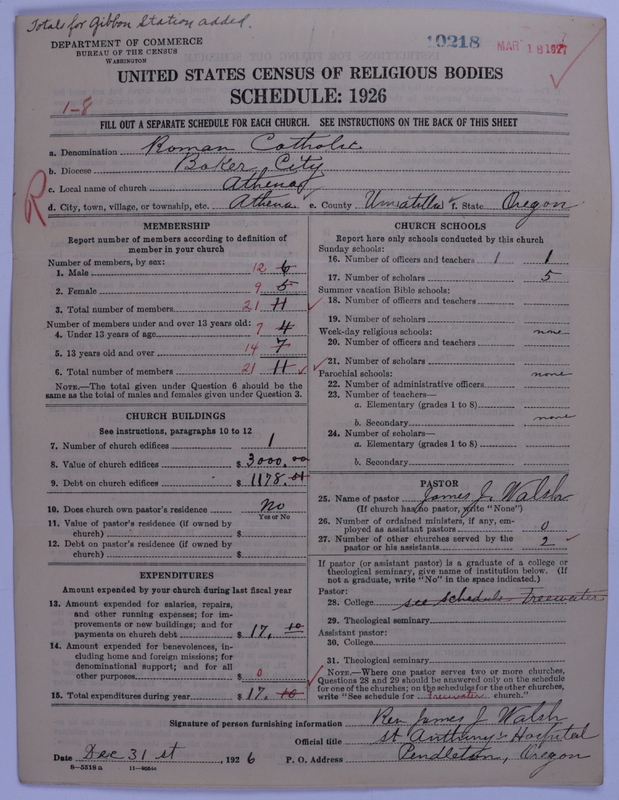 Totals for Gibbon Station added.
DEPARTMENT OF COMMERCE
BUREAU OF THE CENSUS
WASHINGTON
10218
MAR 18 1927
UNITED STATES CENSUS OF RELIGIOUS BODIES
SCHEDULE: 1926
1-8
FILL OUT A SEPARATE SCHEDULE FOR EACH CHURCH. SEE INSTRUCTIONS ON THE BACK OF THIS SHEET
R
a. Denomination Roman Catholic
b. Diocese Baker City
c. Local name of church Athena
d. City, town, village, or township, etc. Athena e. County Umatilla f. State Oregon
MEMBERSHIP
Report number of members according to definition of
member in your church
Number of members, by sex:
1. Male 12 6
2. Female 9 5
3. Total number of members 21 11
Number of members under and over 13 years old:
4. Under 13 years of age 7 4
5. 13 years old and over 14 7
6. Total number of members 21 11
NOTE.—The total given under Question 6 should be the
same as the total of males and females given under Question 3.
CHURCH BUILDINGS
See instructions, paragraphs 10 to 12
7. Number of church edifices 1
8. Value of church edifices $ 3000.00
9. Debt on church edifices $ 1178.01
10. Does church own pastor's residence No
Yes or No
11. Value of pastor's residence (if owned by
church) $
12. Debt on pastor's residence (if owned by
church) $
EXPENDITURES
Amount expended by your church during last fiscal year
13. Amount expended for salaries, repairs,
and other running expenses; for im-
provements or new buildings; and for
payments on church debt $ 17.10
14. Amount expended for benevolences, in-
cluding home and foreign missions; for
denominational support; and for all
other purposes $ 0
15. Total expenditures during year $ 17.10
CHURCH SCHOOLS
Report here only schools conducted by this church
Sunday schools:
16. Number of officers and teachers 1 1
17. Number of scholars 5
Summer vacation Bible schools:
18. Number of officers and teachers
19. Number of scholars
Week-day religious schools: none
20. Number of officers and teachers
21. Number of scholars
Parochial schools: none
22. Number of administrative officers
23. Number of teachers—
a. Elementary (grades 1 to 8)
b. Secondary none
24. Number of scholars—
a. Elementary (grades 1 to 8)
b. Secondary
PASTOR
25. Name of pastor James J. Walsh
(If church has no pastor, write "None")
26. Number of ordained ministers, if any, em-
ployed as assistant pastors 0
27. Number of other churches served by the
pastor or his assistants 2
If pastor (or assistant pastor) is a graduate of a college or
theological seminary, give name of institution below. (If
not a graduate, write "No" in the space indicated.)
Pastor:
28. College see schedule Freewater
29. Theological seminary
Assistant pastor:
30. College
31. Theological seminary
NOTE.—Where one pastor serves two or more churches,
Questions 28 and 29 should be answered only on the schedule
for one of the churches; on the schedules for the other churches,
write "See schedule for Freewater church."
Signature of person furnishing information Rev. James J. Walsh
Official title St Anthony's Hospital
Date Dec 31 st, 1926 P. O. Address Pendleton, Oregon
8-5518 a